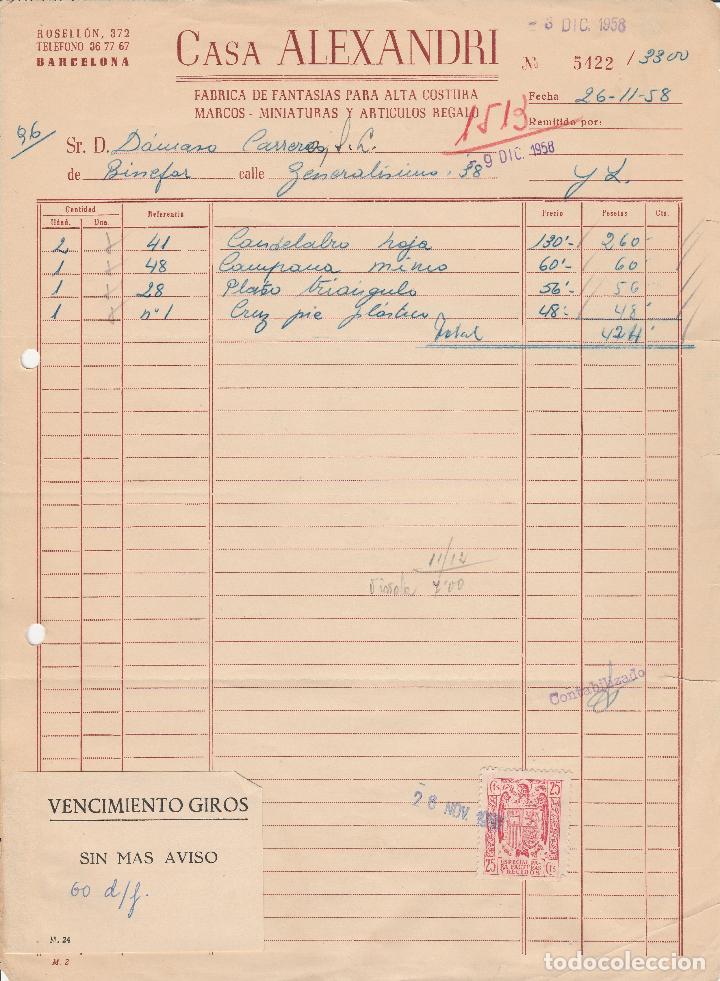 ROSELLÓN, 372
TELEFONO 36 77 67
BARCELONA
CASA ALEXANDRI
FABRICA DE FANTASIAS PARA ALTA COSTURA
MARCOS - MINIATURAS Y ARTICULOS REGALO
- 3 DIC. 1958
Nº 5422 / 3300
Fecha 26-11-58
1513
Remitido por:
- 9 DIC. 1958
96
Sr. D. Dámaso Carreras, S. L.
de Binefar calle Generalísimo 38
Cantidad
Unid. Dna. Referencia Precio Pesetas Cts.
2 41 Candelabro hoja 130'- 260
1 48 Campana mimo 60'- 60
1 28 Plato triángulo 56'- 56
1 nº 1 Cruz pie plástico 48'- 48
Total 424
11/12
7'00
Contabilizado
- 26 NOV. 19
25 cts. 25
ESPECIAL PA-
RA FACTURAS
Y RECIBOS
25 cts
VENCIMIENTO GIROS
SIN MAS AVISO
60 d/f.
M. 24
M. 2
todocoleccion.net